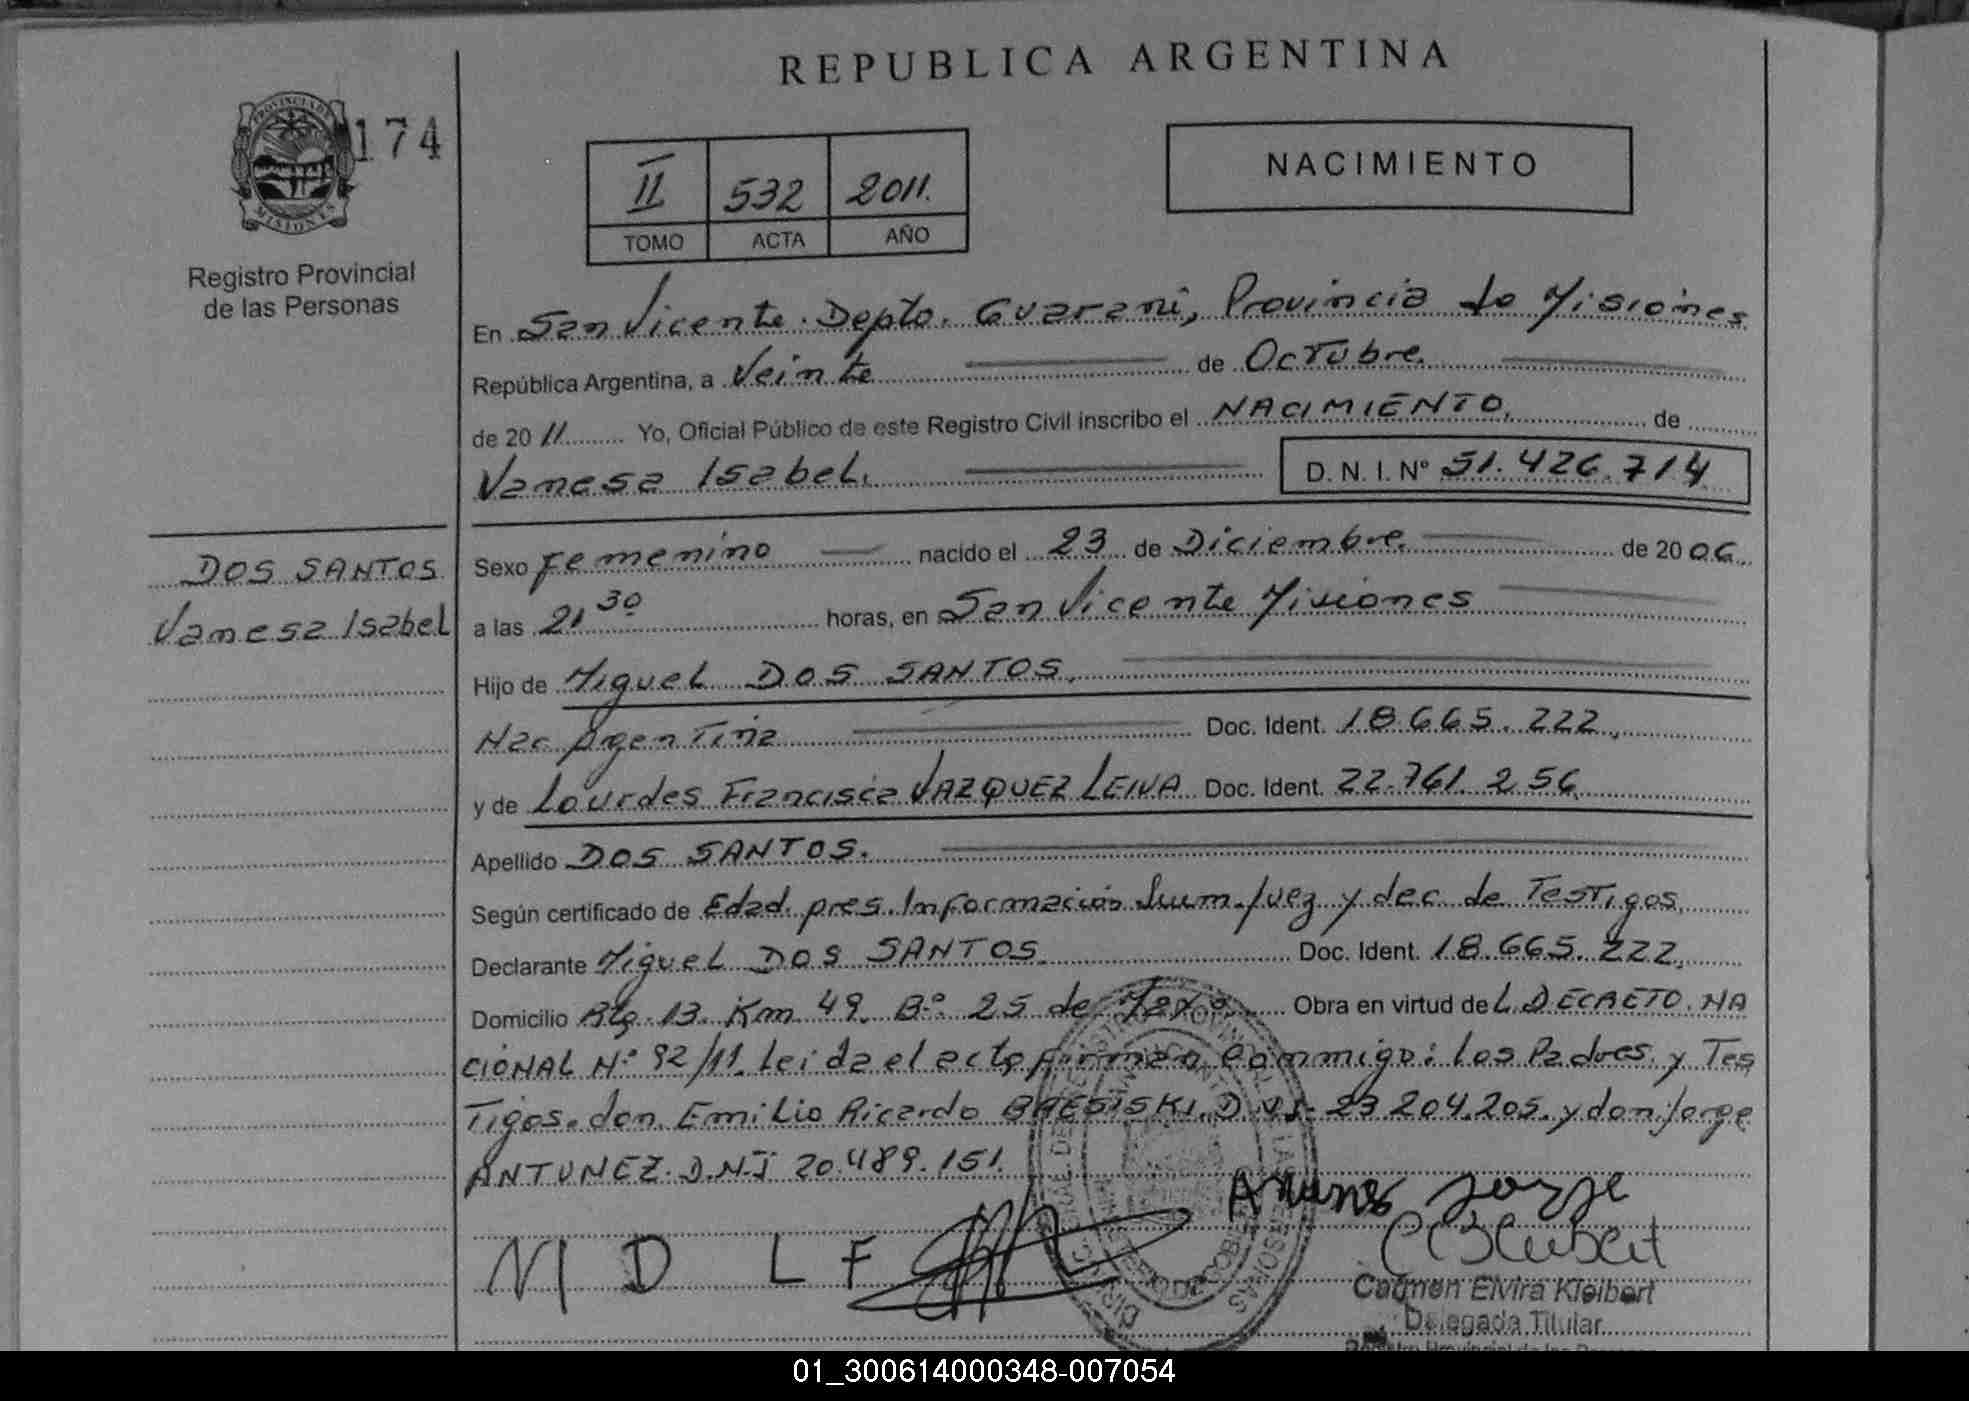 REPUBLICA ARGENTINA
PROVINCIA DE
MISIONES
174
Registro Provincial
de las Personas
II 532 2011.
TOMO ACTA AÑO
NACIMIENTO
En San Vicente. Depto. Guarani, Provincia de Misiones
República Argentina, a Veinte de Octubre
de 20 11 Yo, Oficial Público de este Registro Civil inscribo el NACIMIENTO. de
Vanesa Isabel. D. N. I. Nº 51.426.714
DOS SANTOS
Vanesa Isabel
Sexo femenino nacido el 23 de Diciembre de 20 06
a las 21 30 horas, en San Vicente Misiones
Hijo de Miguel DOS SANTOS.
Nac Argentina Doc. Ident. 18.665.222.
y de Lourdes Francisca VAZQUEZ LEIVA Doc. Ident. 22.761.256
Apellido DOS SANTOS.
Según certificado de Edad. pres. Informacion Sum. Juez y dec. de Testigos
Declarante Miguel DOS SANTOS Doc. Ident. 18.665.222.
Domicilio Rta. 13. Km 49. Bº 25 de Mayo Obra en virtud del DECRETO. NA
CIONAL Nº 92/11. Leida el acta firman conmigo: los Padres y Tes
Tigos. don Emilio Ricardo D.N.I. 23 204.205. y don Jorge
ANTUNEZ. D.N.I 20.489.151.
M D L F
Jorge
Carmen Elvira Kleibert
Delegada Titular
01_300614000348-007054